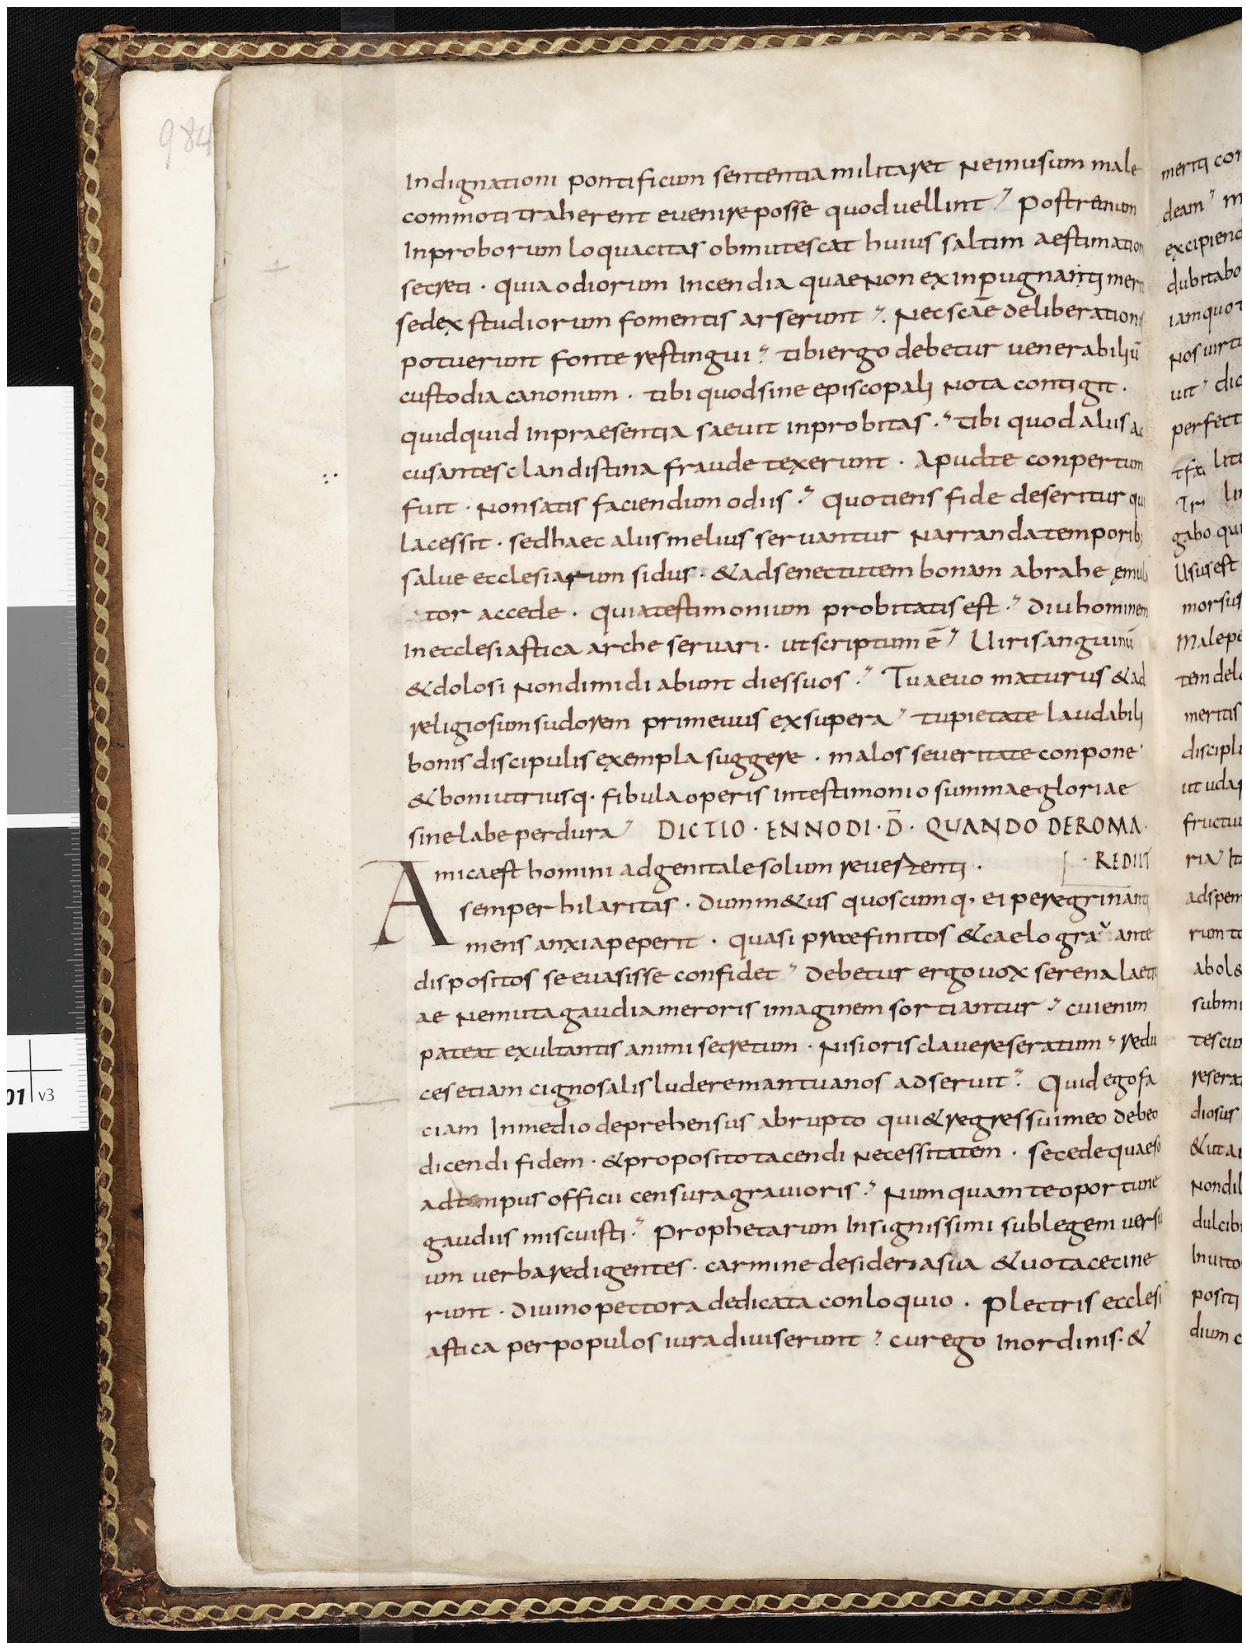 984
Indignationi pontificum sententia militaret Ne inusum male
commoti traherent evenire posse quod vellint Postremum
Inproborum loquacitas obmutescat huius saltim aestimation
secreti · quia odiorum Incendia quae Non ex inpugnanti meri
sed ex studiorum fomentis arserunt Nec scāe deliberation
potuerunt fonte restingui tibi ergo debetur venerabiliū
custodia canonum · tibi quod sine episcopali Nota contigit ·
quidquid Inpraesentia saeuit inprobitas · tibi quod alus ac
cusantes clandistina fraude texerunt · Apud te conpertum
fuit · Non satis faciendum odiis Quotiens fide deseritur qui
lacessit · sed haec alus melius servantur Narranda temporib;
salue ecclesiarum sidus · & ad senectutem bonam abrahe emul
tor accede · Quia testimonium probitatis est · diu hominem
In ecclesiastica arche servari · ut scriptum ē Uiri sanguinū
& dolosi Non dimidiabunt dies suos · Tu aevo maturus & ad
religiosum sudorem primevus exsupera tu pietate laudabili
bonis discipulis exempla suggere · malos severitate conpone
& boni utriusq · fibula operis in testimonio summae gloriae
sine labe perdura DICTIO · ENNODI · D̄ · QUANDO DE ROMA
REDIIT
Amica est homini ad genitale solum revertenti ·
semper hilaritas · dum m&us quoscumq, ei peregrinanti
mens anxia peperit · quasi praefinitos & caelo gra ante
dispositos se evasisse confidet debetur ergo vox serena laetiti
ae Ne muta gaudia meroris imaginem sortiantur cui enim
pateat exultantis animi secretum · Nisi oris clave reseratum redu
ces etiam cignos alis ludere mantuanos adseruit Quid ego fa
ciam In medio deprehensus abrupto qui & regressui meo debeo
dicendi fidem · & proposito tacendi Necessitatem · secede quaeso
ad tempus officii censura gravioris Numquam te oportune
gaudiis miscuisti Prophetarum Insignissimi sub legem versu
um verba redigentes · carmine desideria sua & vota cecine
runt · divino pectora dedicata conloquio · Plectris ecclesi
astica per populos iura diviserunt cur ego Inordinis · &